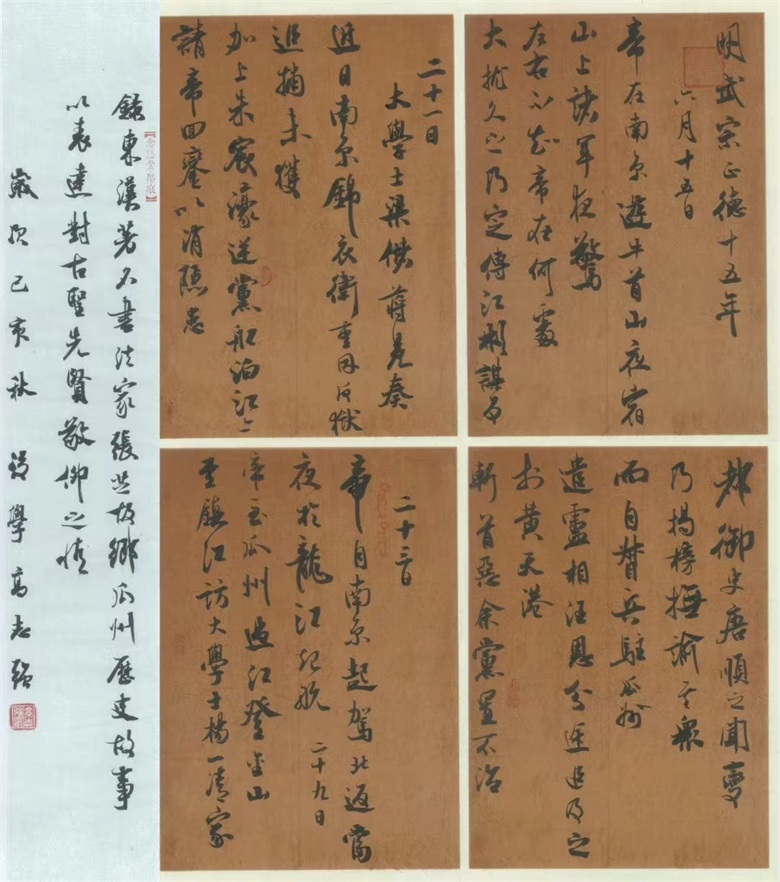 明武宗正德十五年
六月十五日
帝在南京遊牛首山夜宿
山上諸軍夜驚
左右不知帝在何處
大擾久之乃定傳江彬謀為
二十一日
大學士梁儲蔣冕奏
近日南京錦衣衛重囚反獄
追捕未獲
加上朱宸濠逆黨船泊江上
請帝回鑾以消隱患
都御史唐順之聞變
乃揭榜撫諭其眾
而自督兵駐瓜州
遣盧相汪恩分道追及之
於黃天港
斬首惡余黨置不治
二十三日
帝自南京起駕北返當
夜於龍江起航 二十九日
帝至瓜州過江登金山
至鎮江訪大學士楊一清家
錄東漢著名書法家張芝故鄉瓜州歷史故事
以表達對古聖先賢敬仰之情
歲次己亥秋 學高志強